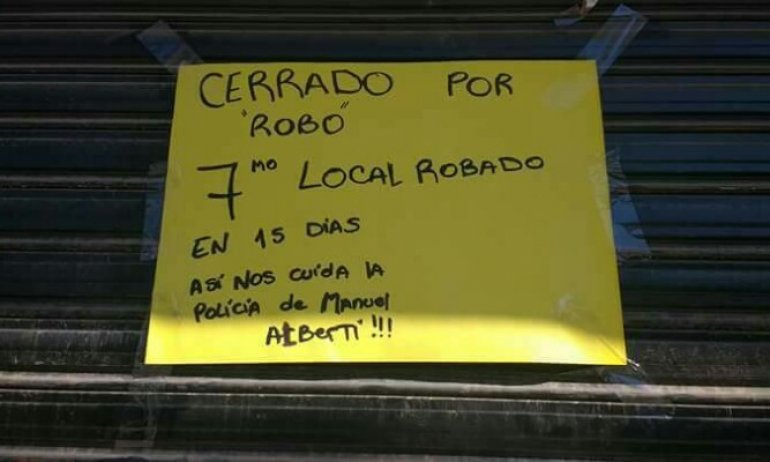 CERRADO POR
"ROBO"
7mo LOCAL ROBADO
EN 15 DIAS
ASÍ NOS CUIDA LA
POLICIA de MANUEL
ALBERTI!!!